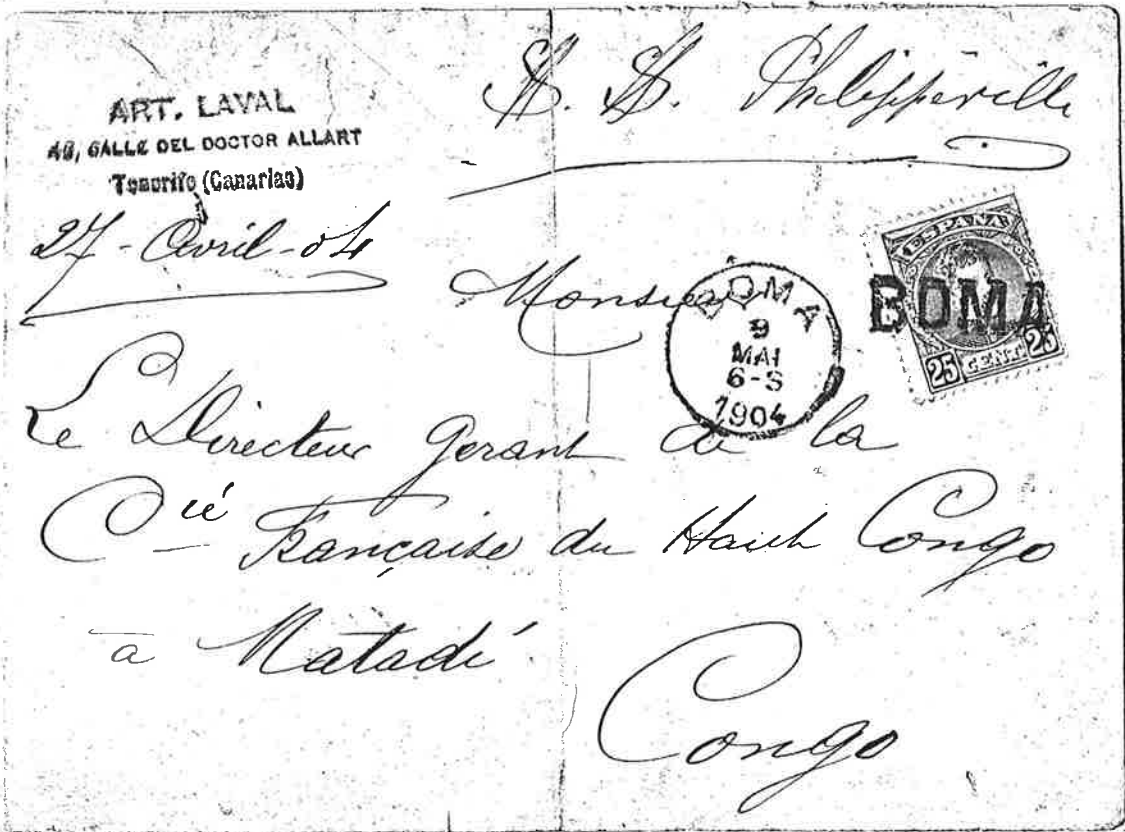 ART. LAVAL
48, CALLE DEL DOCTOR ALLART
Tenerife (Canarias)
S. S. Philippeville
27 - Avril - 04
Monsieur
BOMA
9
MAI
6-S
1904
ESPAÑA
BOMA
25 CENT. 25
Le Directeur Gerant de la
Cie Française du Haut Congo
a Matadi
Congo